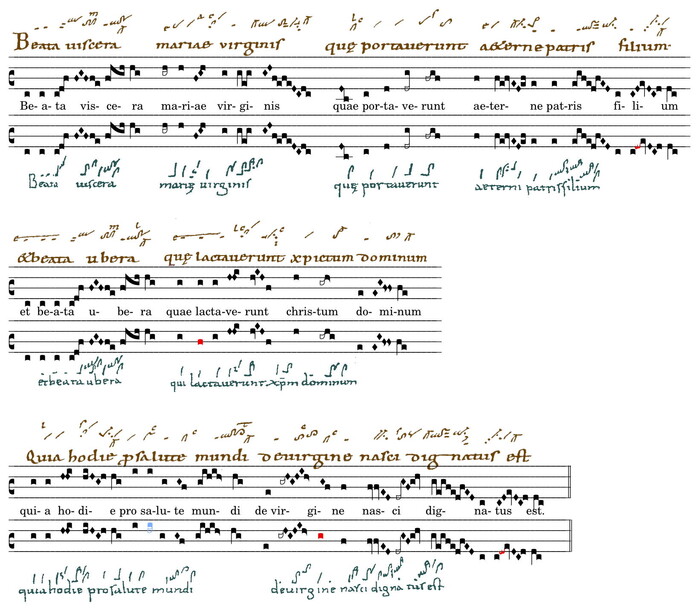 Beata viscera mariae virginis quę portaverunt aeterne patris filium.
Be- a- ta vis- ce- ra ma- ri- ae vir- gi- nis quae por- ta- ve- runt ae- ter- ne pat- ris fi- li- um
Beata viscera marię virginis quę portaverunt aeterni patris filium
& beata ubera quę lactaverunt xpictum dominum
et be- a- ta u- be- ra quae lacta- ve- runt chris- tum do- mi- num
et beata ubera qui lactaverunt xpm dominum
Quia hodie p salute mundi de virgine nasci dignatus est
qui- a ho- di- e pro sa- lu- te mun- di de vir- gi- ne nas- ci dig- na- tus est.
quia hodie pro salute mundi de virgine nasci dignatus est